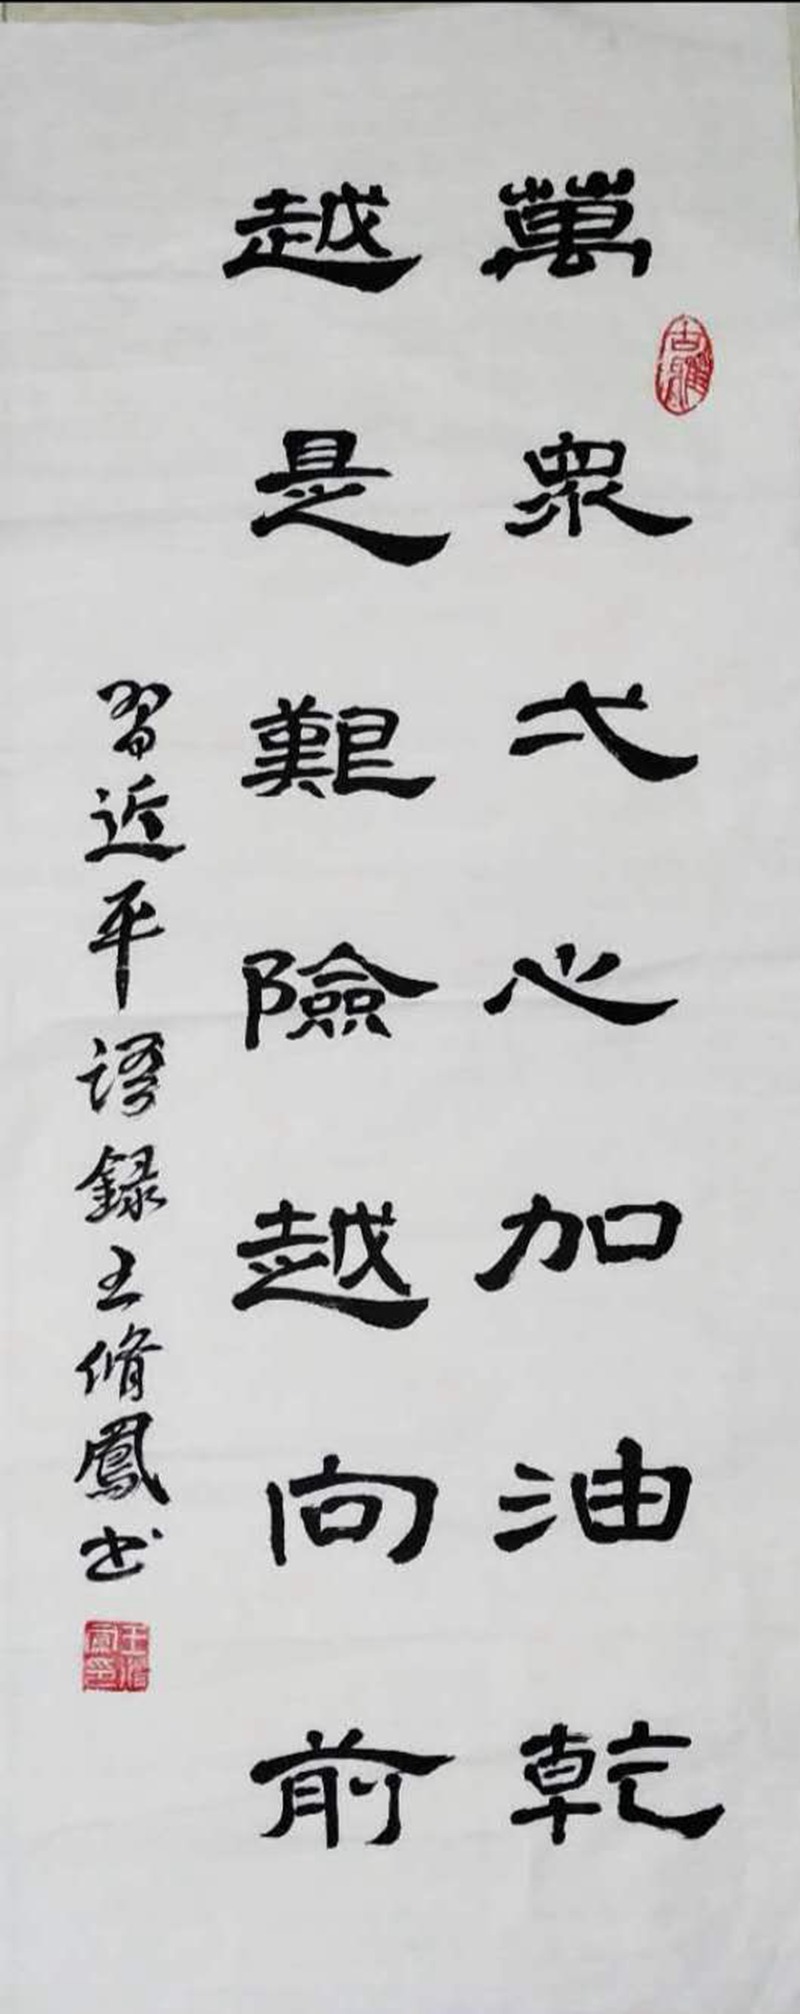 萬眾弌心加油乾
越是艱險越向前
習近平語録王脩鳳书